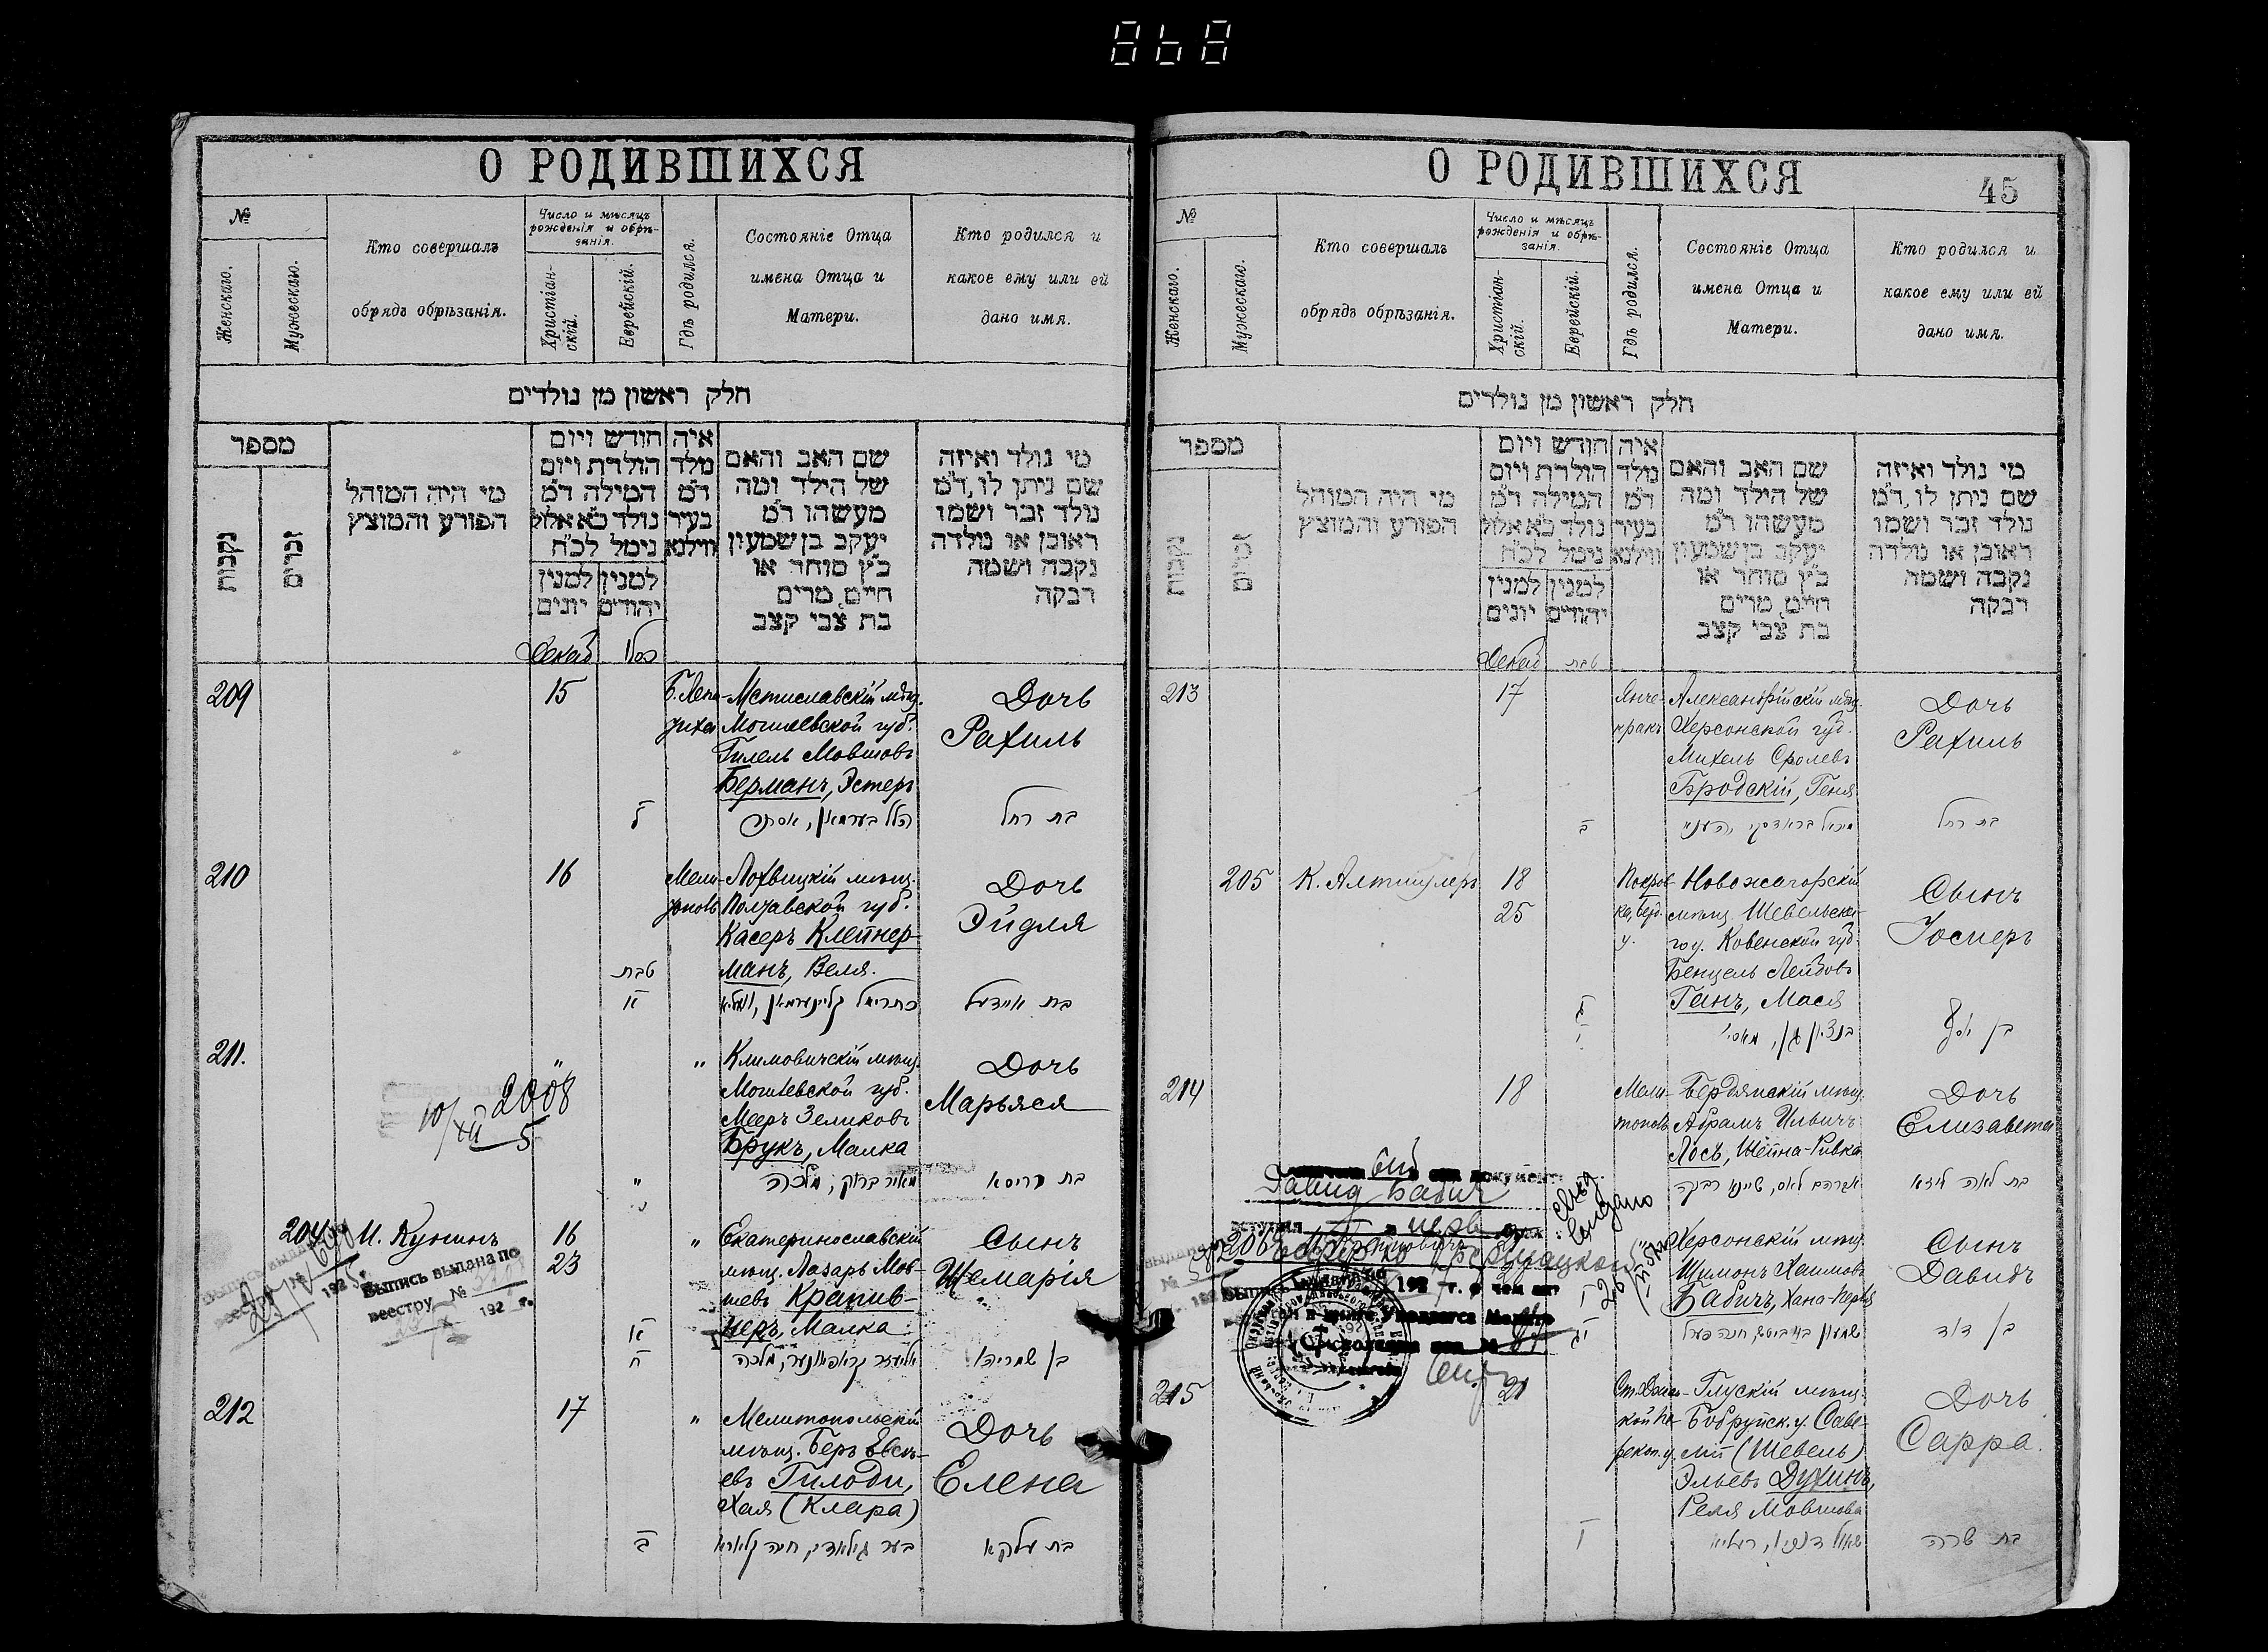 868
О РОДИВШИХСЯ
№
Женскаго.
Мужескаго.
Кто совершалъ
обрядъ обрѣзанія.
Число и мѣсяцъ
рожденія и обрѣ-
занія.
Христіан-
скій.
Еврейскій.
Гдѣ родился.
Состояніе Отца
имена Отца и
Матери.
Кто родился и
какое ему или ей
дано имя.
חלק ראשון מן נולדים
מספר
נקבות
זכרים
מי היה המוהל
הפורע והמוצץ
חודש ויום
הולדת ויום
המילה ד״מ
נולד כ״א אלול
נימל לכ״ח
למנין למנין
יהודים יונים
איה
נולד
ד״מ
בעיר
ווילנא
שם האב והאם
של הילד ומה
מעשהו ד״מ
יעקב בן שמעון
כ״ץ סוחר או
חיים, מרים
בת צבי קצב
מי נולד ואיזה
שם ניתן לו, ד״מ
נולד זכר ושמו
ראובן או נולדה
נקבה ושמה
רבקה
Декаб
כסלו
209
15
Б. Лепа-
тиха
Мстиславскій мѣщ.
Могилевской губ.
Гилель Мовшовъ
Берманъ, Эстеръ
Дочь
Рахиль
ל
הלל בערמאן, אסתר
בת רחל
210
16
Мели-
тополь
Лохвицкій мѣщ.
Полтавской губ.
Касеръ Клейнер-
манъ, Веля.
Дочь
Эйдля
טבת
א
בת איידעל
211.
"
"
Климовичскій мѣщ.
Могилевской губ.
Мееръ Зеликовъ
Брукъ, Малка
Дочь
Марьяся
2008
10/XII 5
"
מאיר ברוק, מלכה
בת מריסא
204
И. Кунинъ
16
23
"
Екатеринославскій
мѣщ. Лазарь Мов-
шевъ Крапив-
неръ, Малка
Сынъ
Шемарія
Выпись выдана по
реестру №
192 г.
א
ח
בן שמריהו
212
17
"
Мелитопольскій
мѣщ. Беръ Евсѣ-
евъ Гилоди,
Хая (Клара)
Дочь
Елена
ב
בער גילאדי, חיה קלארא
בת עלקא
О РОДИВШИХСЯ
45
№
Женскаго.
Мужескаго.
Кто совершалъ
обрядъ обрѣзанія.
Число и мѣсяцъ
рожденія и обрѣ-
занія.
Христіан-
скій.
Еврейскій.
Гдѣ родился.
Состояніе Отца
имена Отца и
Матери.
Кто родился и
какое ему или ей
дано имя.
חלק ראשון מן נולדים
מספר
נקבות
זכרים
מי היה המוהל
הפורע והמוצץ
חודש ויום
הולדת ויום
המילה ד״מ
נולד כ״א אלול
נימל לכ״ח
למנין למנין
יהודים יונים
איה
נולד
ד״מ
בעיר
ווילנא
שם האב והאם
של הילד ומה
מעשהו ד״מ
יעקב בן שמעון
כ״ץ סוחר או
חיים, מרים
בת צבי קצב
מי נולד ואיזה
שם ניתן לו, ד״מ
נולד זכר ושמו
ראובן או נולדה
נקבה ושמה
רבקה
Декаб
טבת
213
17
Янче-
кракъ
Александрійскій мѣщ.
Херсонской губ.
Михель Сролевъ
Бродскій, Геня
Дочь
Рахиль
ב
בת רחל
205
К. Алтшулеръ
18
25
Покров-
ка, Берд.
у.
Новожагорскій
мѣщ. Шевельска-
го у. Ковенской губ.
Бенцель Лейбовъ
Ганъ, Мася
Сынъ
Іосифъ
ג
י
בנציון גן, מאסי
בן יוסף
214
18
Мели-
тополь
Бердянскій мѣщ.
Абрамъ Ильичъ
Лосъ, Шейна-Ривка
Дочь
Елизавета
אברהם לאס, שיינא רבקה
בת לאה ליזא
206
Давид Бабич
"
Херсонскій мѣщ.
Шимонъ Хаимовъ
Бабичъ, Хана-Перля
Сынъ
Давидъ
בן דוד
215
21
Глускій мѣщ.
Бобруйск. у. Саве-
лій (Шевель)
Эльевъ Духинъ,
Реля Мовшова
Дочь
Сарра.
בת שרה